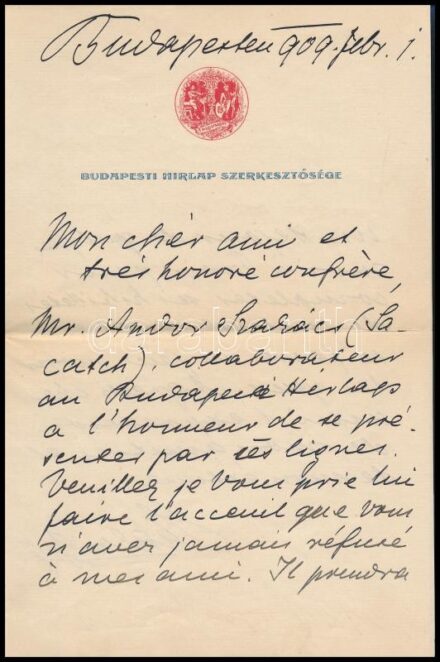 Budapesten 909. febr. 1.
BUDAPESTI HIRLAP SZERKESZTŐSÉGE
Mon chér ami et
trés honoré confrère,
Mr. Andor Szakács (Sa-
catch), collaborateur
au Budapesti Herlap
a l'honneur de se pré-
senter par ces lignes.
Veuillez je vous prie lui
faire l'acceuil que vous
n'avez jamais réfusé
à mes ami. Il prendra
darabanth